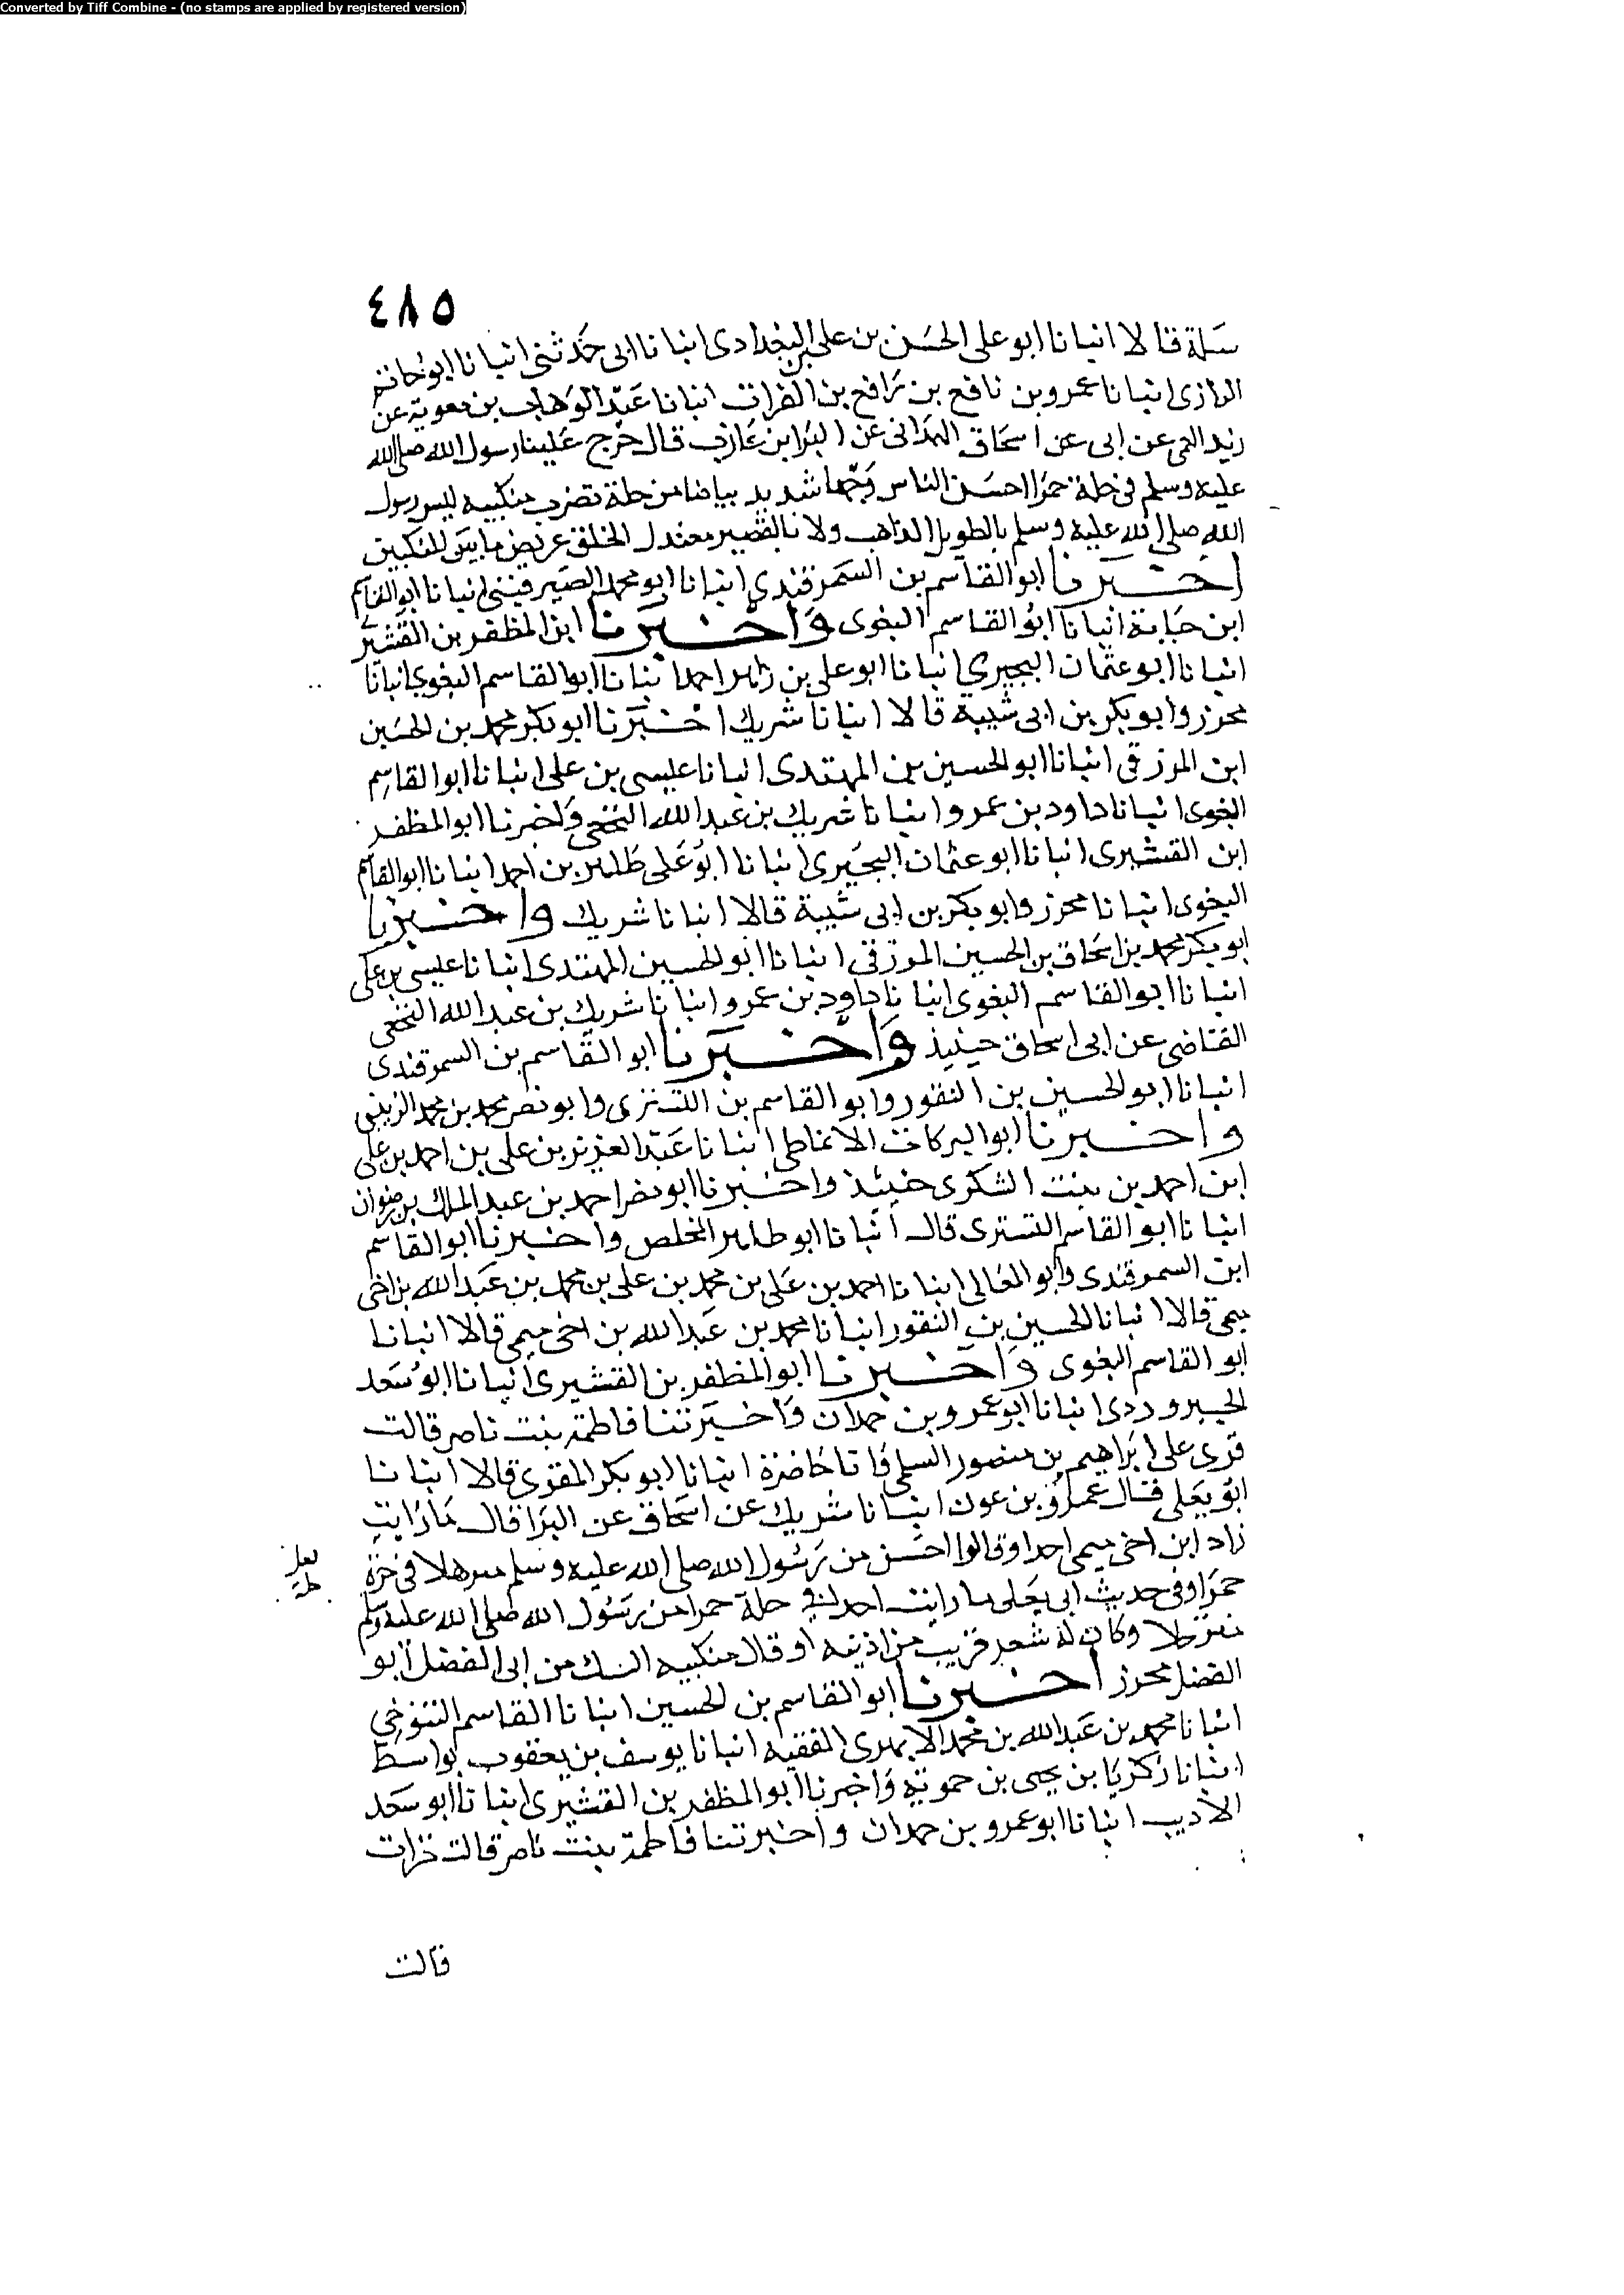 Converted by Tiff Combine - (no stamps are applied by registered version)
٤٨٥
سلمة قالا انبانا ابو على الحسن بن على بن البغدادى انبانا ابى حدثنى انبانا ابو حاتم
الرازى انبانا عمرو بن نافع بن رافع بن الفرات انبانا عبد الوهاب بن معوية عن
زيد العمى عن ابى عن اسحاق الهمدانى عن البرا بن عازب قال خرج علينا رسول الله صلى الله
عليه وسلم فى حلة حمرا احسن الناس وجها شديد بياضا من حلة تضرب منكبيه ليس رسول
الله صلى الله عليه وسلم بالطويل الذاهب ولا بالقصير معتدل الخلق عريض ما بين المنكبين
اخبرنا ابو القاسم بن السمرقندى انبانا ابو محمد الصيرفينى انبانا ابو القاسم
ابن حبابة انبانا ابو القاسم البغوى واخبرنا ابن المظفر بن القشيرى
انبانا ابو عثمان البجيرى انبانا ابو على بن زاهر احمد انبانا ابو القاسم البغوى انبانا
محرز وابو بكر بن ابى شيبة قالا انبانا شريك اخبرنا ابو بكر محمد بن الحسين
ابن المرزقى انبانا ابو الحسين بن المهتدى انبانا عيسى بن على انبانا ابو القاسم
البغوى انبانا داود بن عمرو انبانا شريك بن عبد الله النخعى واخبرنا ابو المظفر
ابن القشيرى انبانا ابو عثمان البجيرى انبانا ابو على طاهر بن احمد انبانا ابو القاسم
البغوى انبانا محرز وابو بكر بن ابى شيبة قالا انبانا شريك واخبرنا
ابو بكر محمد بن اسحاق بن الحسين المرزقى انبانا ابو الحسين المهتدى انبانا عيسى بن على
انبانا ابو القاسم البغوى انبانا داود بن عمرو انبانا شريك بن عبد الله النخعى
القاضى عن ابى اسحاق حينيذ واخبرنا ابو القاسم بن السمرقندى
انبانا ابو الحسين بن النقور وابو القاسم بن التسترى وابو نصر محمد بن محمد الزينبى
واخبرنا ابو البركات الانماطى انبانا عبد العزيز بن على بن احمد بن على
ابن احمد بن بنت الشكرى حينئذ واخبرنا ابو نصر احمد بن عبد الملك بن رضوان
انبانا ابو القاسم التسترى قال انبانا ابو طاهر المخلص واخبرنا ابو القاسم
ابن السمرقندى وابو المعالى انبانا احمد بن على بن محمد بن على بن محمد بن عبد الله بن اخى
ميمى قالا انبانا الحسين بن النقور انبانا محمد بن عبد الله بن اخى ميمى قالا انبانا
ابو القاسم البغوى واخبرنا ابو المظفر بن القشيرى انبانا ابو سعد
الجيزوردى انبانا ابو عمرو بن حمدان واخبرتنا فاطمة بنت ناصر قالت
قرى على ابراهيم بن منصور السلمى وانا حاضرة انبانا ابو بكر المقرى قالا انبانا
ابو يعلى قال عمرو بن عون انبانا شريك عن اسحاق عن البرا قال ما رايت
زاد ابن اخى ميمى احدا وقالوا احسن من رسول الله صلى الله عليه وسلم مترجلا فى حرة
لعل حلة
حمرا وفى حديث ابى يعلى ما رايت احدا فى حلة حمرا من رسول الله صلى الله عليه وسلم
مترجلا وكان له شعر قريب من اذنيه او قال منكبيه الشك من ابى الفضل ابو
الفضل محرز اخبرنا ابو القاسم بن الحسين انبانا القاسم التنوخى
انبانا محمد بن عبد الله بن محمد الابهرى الفقيه انبانا يوسف بن يعقوب بواسط
انبانا زكريا بن يحيى بن حموية واخبرنا ابو المظفر بن القشيرى انبانا ابو سعد
الاديب انبانا ابو عمرو بن حمدان واخبرتنا فاطمة بنت ناصر قالت قرات
قالت